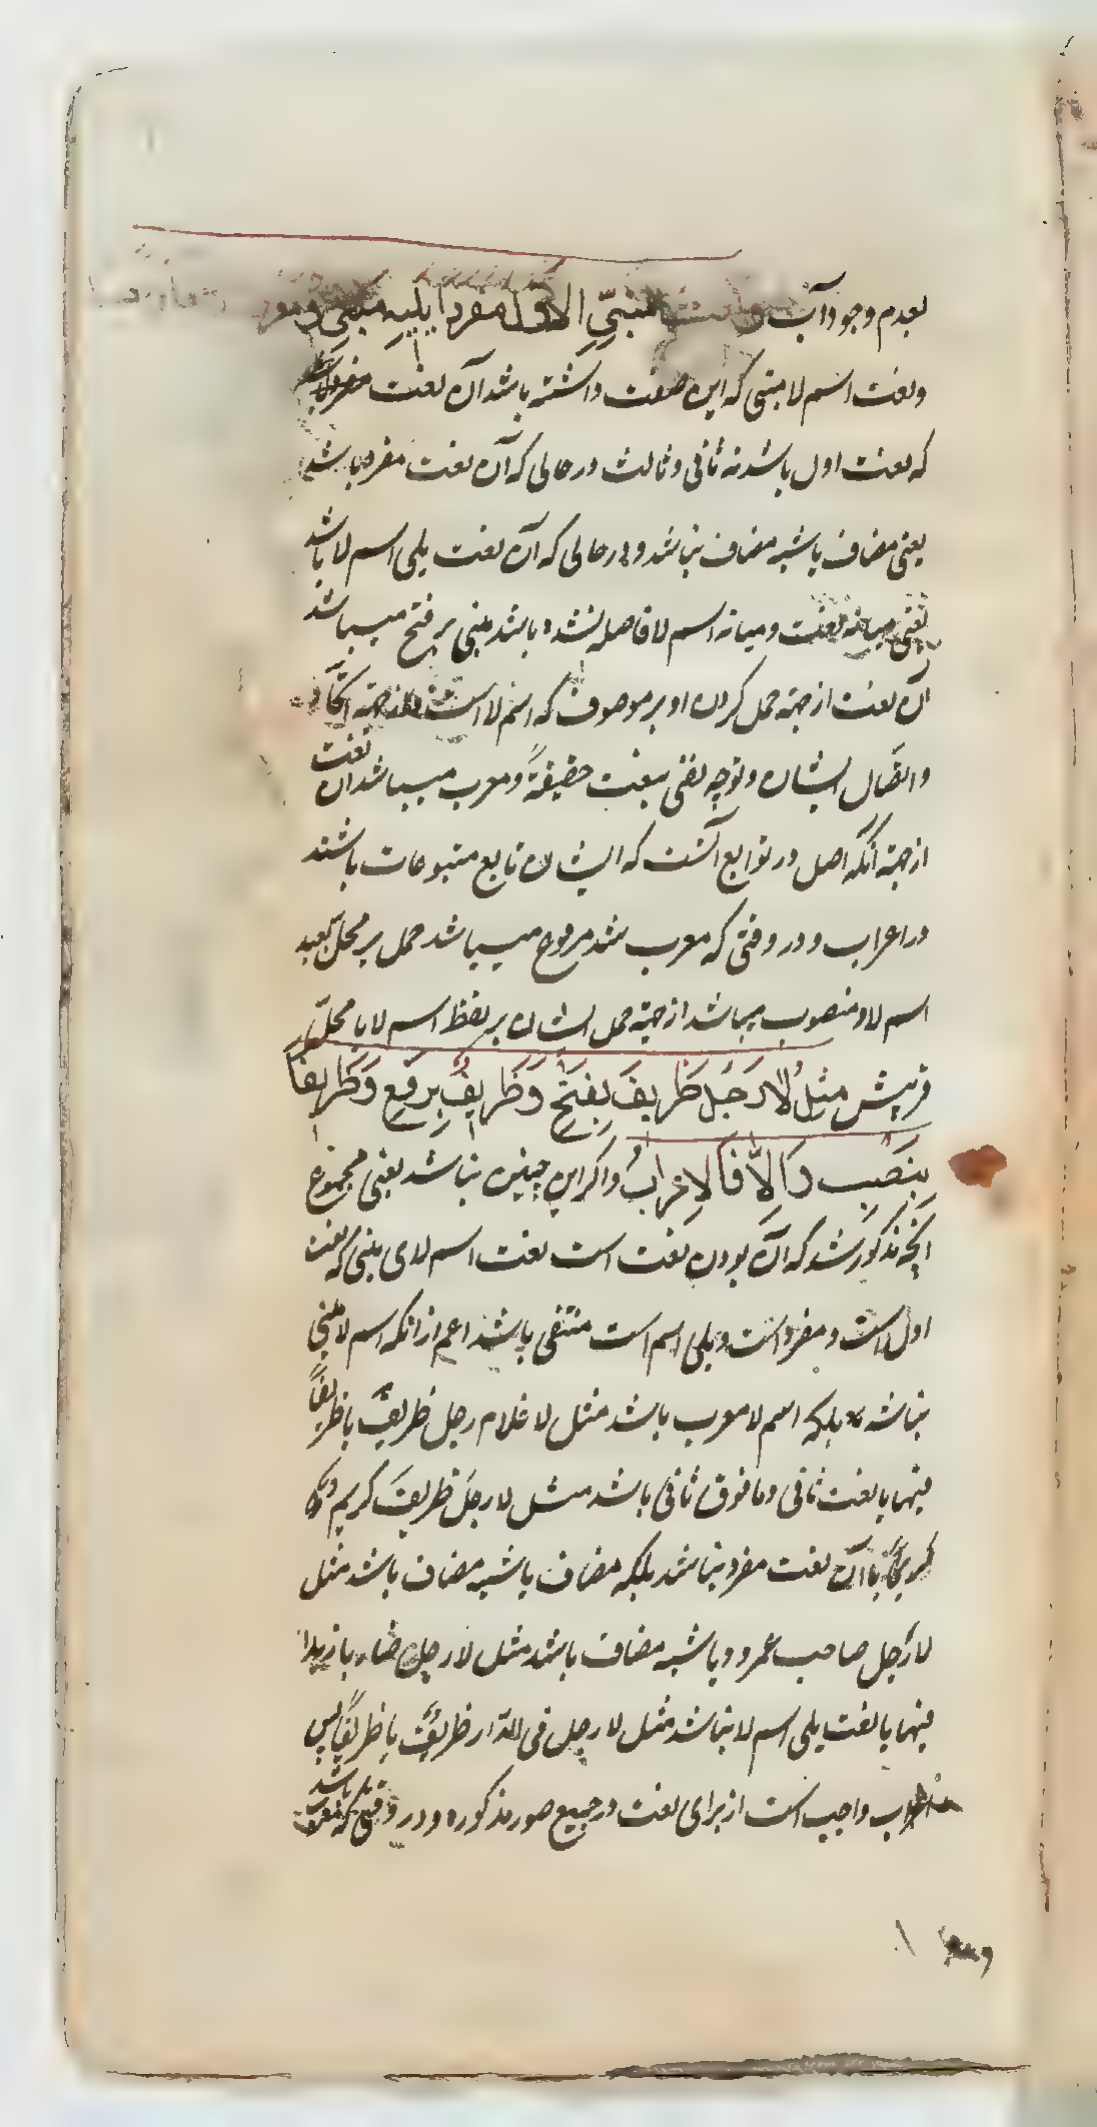 بعدم وجود آب و نعت المبنی الاول مفردا یلیه مبنی و معرب
و نعت اسم لا مبنی که این صفت داشته باشد آن نعت مفرد
که نعت اول باشد نه ثانی و ثالث در حالی که آن نعت مفرد باشد
یعنی مضاف یا شبه مضاف نباشد و در حالی که آن نعت یلی اسم لا باشد
یعنی میانه نعت و میانه اسم لا فاصله نشده باشد مبنی بر فتح میباشد
آن نعت از جهة حمل کردن او بر موصوف که اسم لا است از جهة اتحاد
و اتصال ایشان و توجه نفی بنعت حقیقةً و معرب میباشد آن نعت
از جهة آنکه اصل در توابع آنست که ایشان تابع متبوعات باشند
در اعراب و در وقتی که معرب شد مرفوع میباشد حمل بر محل بعید
اسم لا و منصوب میباشد از جهة حمل ایشان بر لفظ اسم لا یا محل
قریبش مِثلُ لا رَجُلَ ظَریفَ بِفَتحٍ وَظَریفٌ بِرَفعٍ وَظَریفاً
بِنَصبٍ وَاِلاّ فَالاِعرابُ و اگر این چنین نباشد یعنی مجموع
آنچه مذکور شد که آن بودن نعت است نعت اسم لای مبنی که نعت
اول است و مفرد است و یلی اسم است منتفی باشد اعم از آنکه اسم لا مبنی
نباشد بلکه اسم لا معرب باشد مثل لا غلام رجل ظریفٌ یا ظریفاً
فیها یا نعت ثانی و ما فوق ثانی باشد مثل لا رجلَ ظریفَ کریم و
کریماً یا آن نعت مفرد نباشد بلکه مضاف یا شبه مضاف باشد مثل
لا رجل صاحب عمرو و یا شبه مضاف باشد مثل لا رجل ضاربا زیدا
فیها یا نعت یلی اسم لا نباشد مثل لا رجل فی الدار ظریفٌ یا ظریفاً پس
اعراب واجب است از برای نعت در جمیع صور مذکوره و در وقتی که معرب باشد